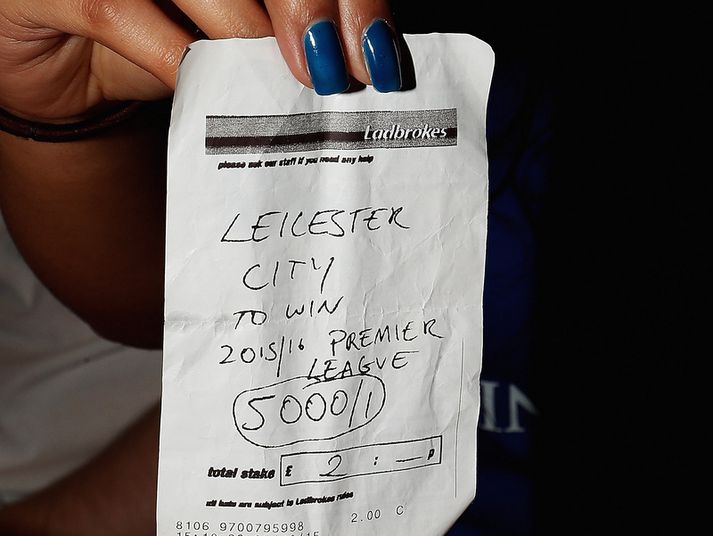 Ladbrokes
please ask our staff if you need any help
LEICESTER
CITY
TO WIN
2015/16 PREMIER
LEAGUE
5000/1
total stake £ 2 : — p
all bets are subject to Ladbrokes rules
8106 9700795998 2.00 C